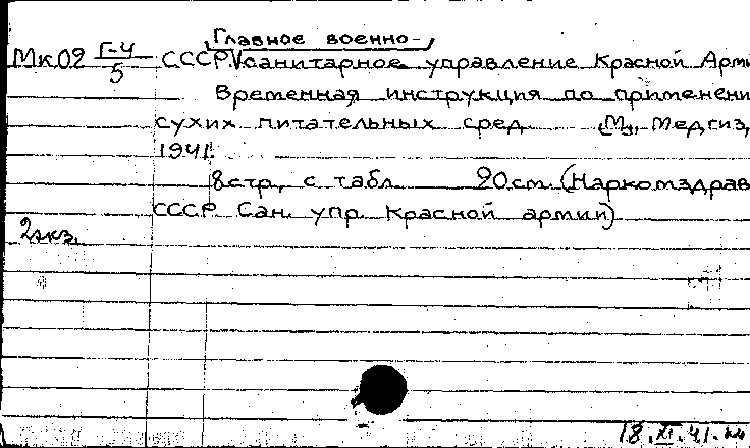 Главное военно-
Мк02 Г-4/5 СССР. санитарное управление Красной Арми
Временная инструкция по применени
сухих питательных сред (М), Медгиз,
1941.
8 стр., с табл. 20 см. (Наркомздрав
СССР. Сан. упр. Красной армии)
2 экз.
18.XI.41.